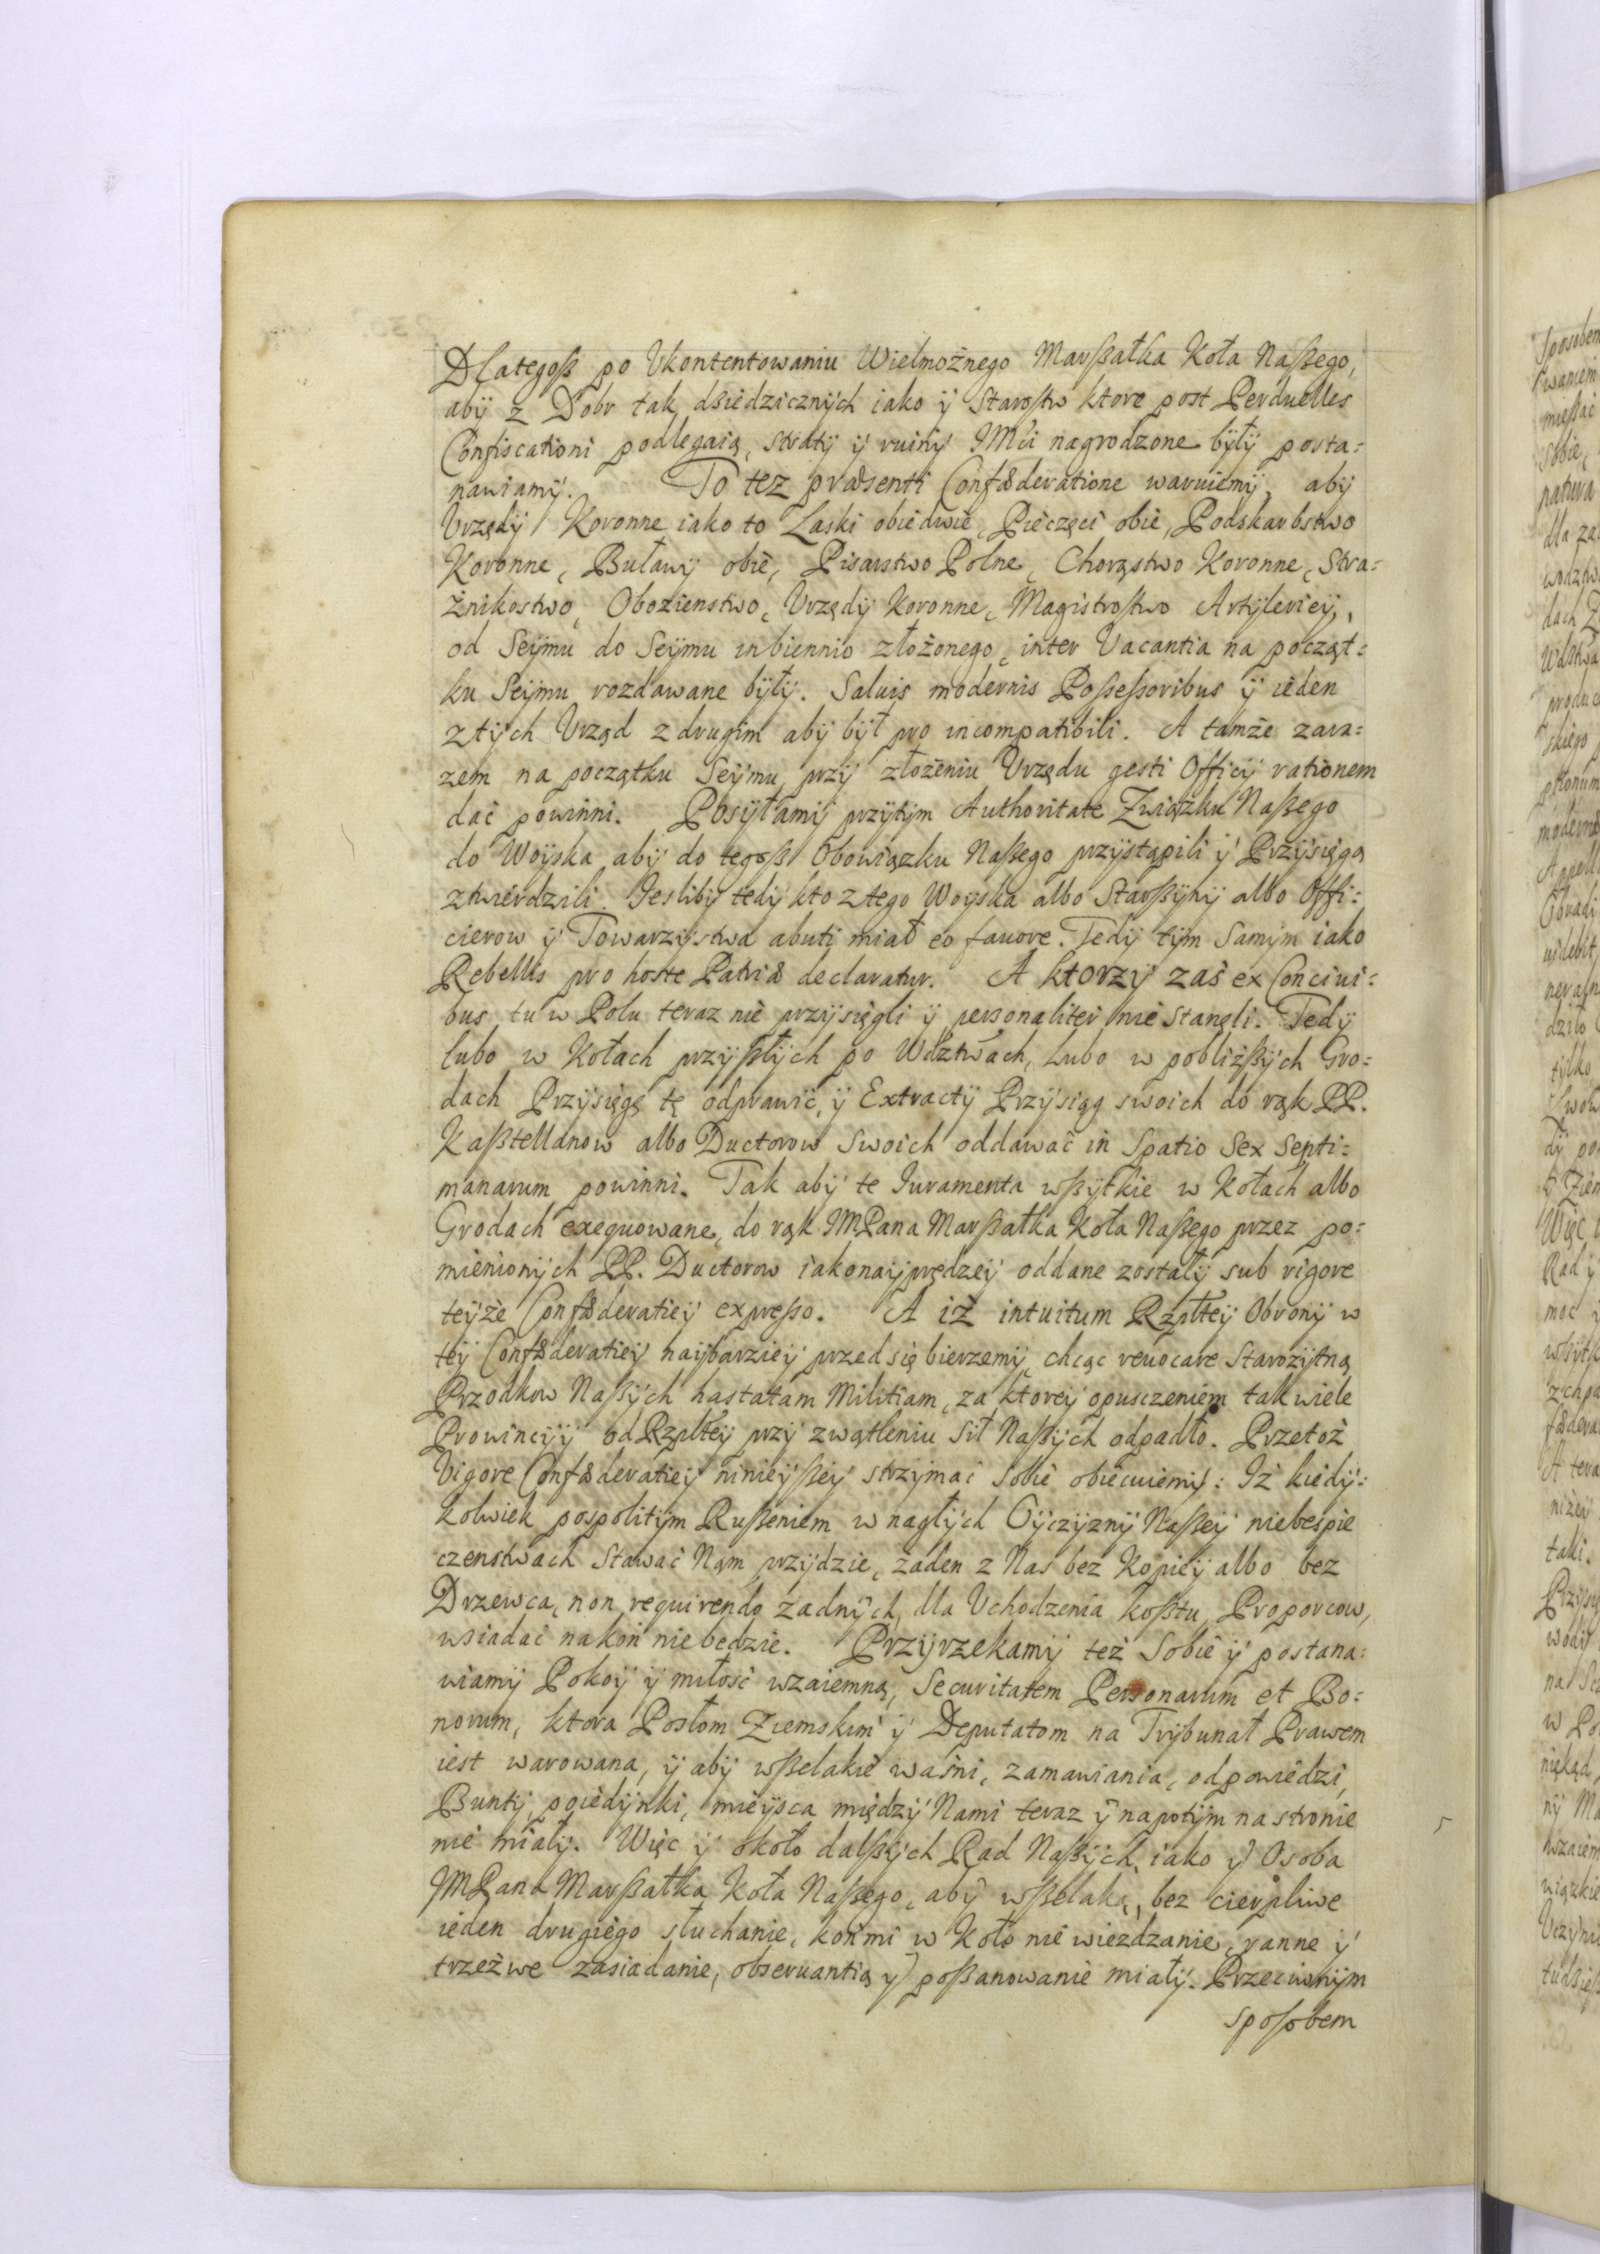 Dlategoß po Vkontentowaniu Wielmożnego Marßałka Koła Naßego,
aby z Dobr tak dziedzicznych iako y Starostw ktore post Perduelles
Confiscationi podlegaią, straty y ruiny JMći nagrodzone były posta=
nawiamy. To tez præsenti Confœderatione waruiemy, aby
Vrzędy Koronne iako to Laski obiedwie, Pieczęci obie, Podskarbstwo
Koronne, Buławy obie, Pisarstwo Polne, Chorąstwo Koronne, Stra=
żnikostwo, Obozienstwo, Vrzędy Koronne, Magistrostwo Artyleriey,
od Seymu do Seymu in biennio złożonego, inter Vacantia na począt=
ku Seymu rozdawane były. Saluis modernis Poßeßoribus y ieden
z tych Vrząd z drugim aby był pro incompatibili. A tamże zara=
zem na początku Seymu przy złożeniu Vrzędu gesti Officij rationem
dać powinni. Posyłamy przytym Authoritate Związku Naßego
do Woyska aby do tegoß Obowiązku Naßego przystąpili y Przysięgą
ztwierdzili. Iesliby tedy kto z tego Woyska albo Starßyny albo Offi=
cierow y Towarzystwa abuti miał eo fauore. Tedy tym samym iako
Rebellis pro hoste Patriæ declaratur. A ktorzy zaś ex Conciui=
bus tu w Polu teraz nie przysięgli y personaliter nie stanęli. Tedy
lubo w Kołach przyßłych po Wdztwach, Lubo w pobliżßych Gro=
dach Przysięgę tę odprawić, y Extracty Przysiąg swoich do rąk PP.
Kaßtellanow albo Ductorow swoich oddawać in Spatio Sex Septi=
manarum powinni. Tak aby te Iuramenta wßytkie w Kołach albo
Grodach exequowane, do rąk JMPana Marßałka Koła Naßego przez po=
mienionych PP. Ductorow iakonayprędzey oddane zostały sub rigore
teyże Confœderatiey expreßo. A iż intuitum Rzpltey Obrony w
tey Confœderatiey naybarziey przed się bierzemy, chcąc reuocare Starożytną
Przodkow Naßych hastatam Militiam, za ktorey opusczeniem tak wiele
Prowinciy od Rzpltey przy zwątleniu sił Naßych odpadło. Przetoż
Vigore Confœderatiey ninieyßey strzymać sobie obiecuiemy: Iż kiedy=
kolwiek pospolitym Rußeniem w nagłych Oyczyzny Naßey niebespie
czenstwach stawać Nam przydzie, żaden z Nas bez Kopiey albo bez
Drzewca, non requirendo żadnych, dla Vchodzenia koßtu, Proporcow,
wsiadać na koń nie będzie. Przyrzekamy też Sobie y postana=
wiamy Pokoy y miłość wzaiemną, Securitatem Personarum et Bo=
norum, ktora Posłom Ziemskim y Deputatom na Trybunał Prawem
iest warowana, y aby wßelakie waśni, zamawiania, odpowiedzi,
Bunty, poiedynki, mieysca między Nami teraz y napotym na stronie
nie miały. Więc y około dalßych Rad Naßych, iako y Osoba
JMPana Marßałka Koła Naßego, aby wßelaką, bez cierpliwe
ieden drugiego słuchanie, końmi w Koło nie wiezdzanie, ranne y
trzeżwe zasiadanie, obseruantią y poßanowanie miały. Przeciwnym
sposobem